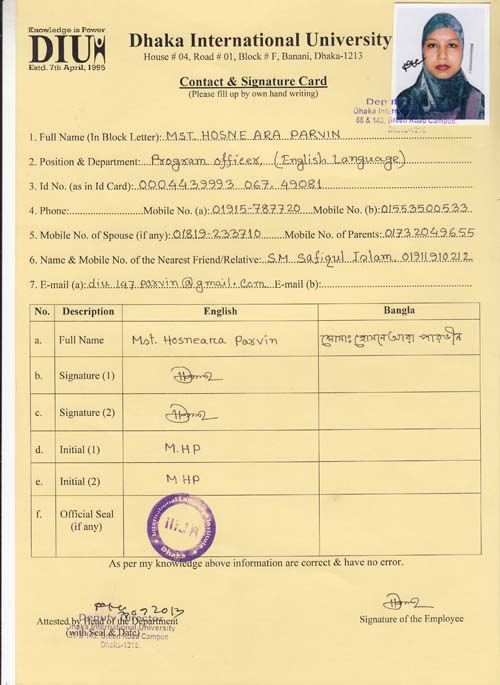 Knowledge is Power
DIU
Estd. 7th April, 1995
Dhaka International University
House # 04, Road # 01, Block # F, Banani, Dhaka-1213
Contact & Signature Card
(Please fill up by own hand writing)
Dhaka International
66 & 143, Green Road Campus
Dhaka-1215
1. Full Name (In Block Letter): MST. HOSNE ARA PARVIN
2. Position & Department: Program officer, (English Language)
3. Id No. (as in Id Card): 0004439993 067. 49081
4. Phone: Mobile No. (a): 01915-787720 Mobile No. (b): 01553500533
5. Mobile No. of Spouse (if any): 01819-233710 Mobile No. of Parents: 01732049655
6. Name & Mobile No. of the Nearest Friend/Relative: S.M. Safiqul Islam, 01911910212
7. E-mail (a): diu.147parvin@gmail.com E-mail (b):
No. Description English Bangla
a. Full Name Mst. Hosneara Parvin মোসাঃ হোসনে আরা পারভীন
b. Signature (1)
c. Signature (2)
d. Initial (1) M.HP
e. Initial (2) M HP
f. Official Seal (if any) International Language Institute Dhaka
As per my knowledge above information are correct & have no error.
Attested by Head of the Department
(with Seal & Date)
Deputy Director
Dhaka International University
66 & 143, Green Road Campus
Dhaka-1215.
Signature of the Employee